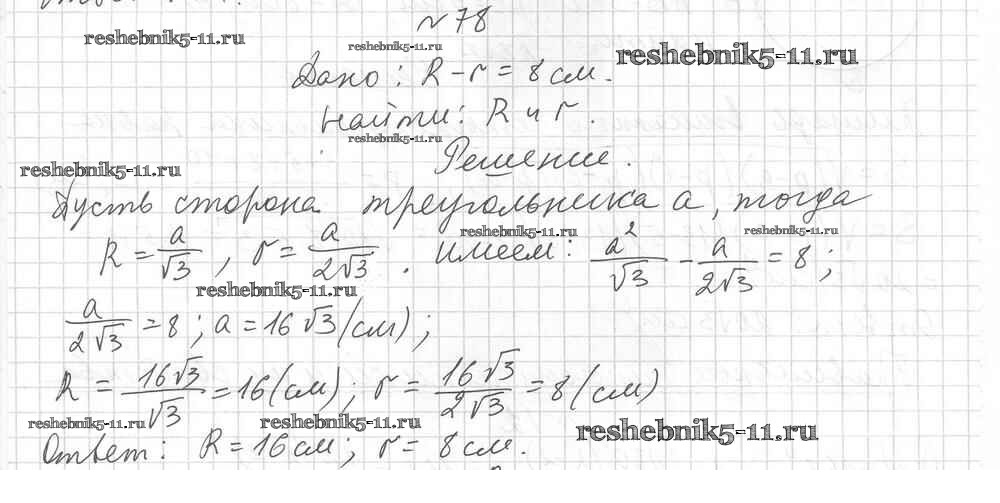 №78
reshebnik5-11.ru
reshebnik5-11.ru
reshebnik5-11.ru
Дано: R - r = 8 см.
Найти: R и r.
reshebnik5-11.ru
Решение.
reshebnik5-11.ru
Пусть сторона треугольника a, тогда
reshebnik5-11.ru
reshebnik5-11.ru
R = a/√3, r = a/2√3. Имеем: a²/√3 - a/2√3 = 8;
reshebnik5-11.ru
a/2√3 = 8; a = 16√3 (см);
R = 16√3/√3 = 16 (см); r = 16√3/2√3 = 8 (см)
reshebnik5-11.ru
reshebnik5-11.ru
reshebnik5-11.ru
Ответ: R = 16 см; r = 8 см.